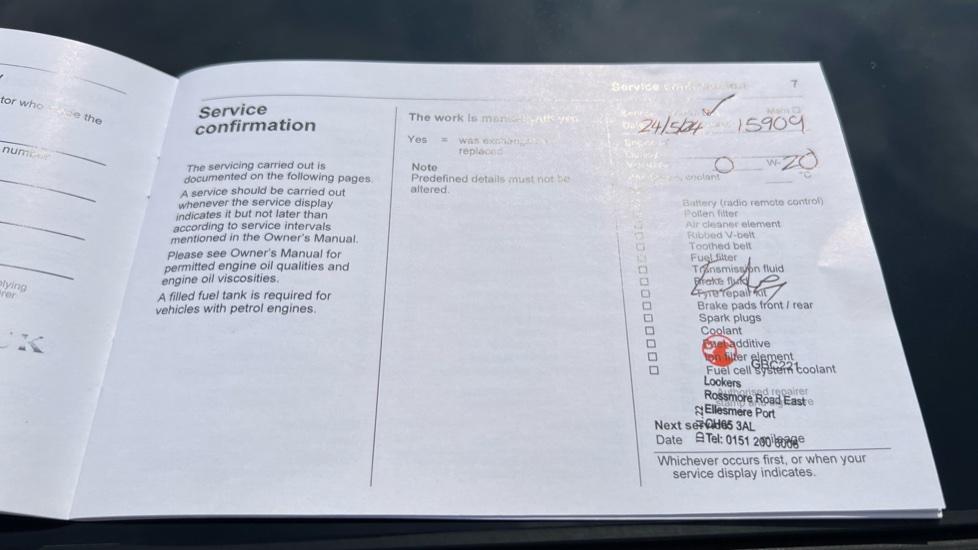 tor who
the
number
Service
confirmation
The servicing carried out is
documented on the following pages.
A service should be carried out
whenever the service display
indicates it but not later than
according to service intervals
mentioned in the Owner's Manual.
Please see Owner's Manual for
permitted engine oil qualities and
engine oil viscosities.
A filled fuel tank is required for
vehicles with petrol engines.
The work is
Yes = was exchanged /
replaced
Note
Predefined details must not be
altered.
Service confirmation
7
24/5/24 15909
0 W-20
coolant °C
Battery (radio remote control)
Pollen filter
Air cleaner element
Ribbed V-belt
Toothed belt
Fuel filter
Transmission fluid
Brake fluid
Tyre repair kit
Brake pads front / rear
Spark plugs
Coolant
Fuel additive
Ion filter element
GBC221
Fuel cell system coolant
Lookers
Authorised repairer
Rossmore Road East
Ellesmere Port
CH65 3AL
Next service
Date
Tel: 0151
mileage
Whichever occurs first, or when your
service display indicates.